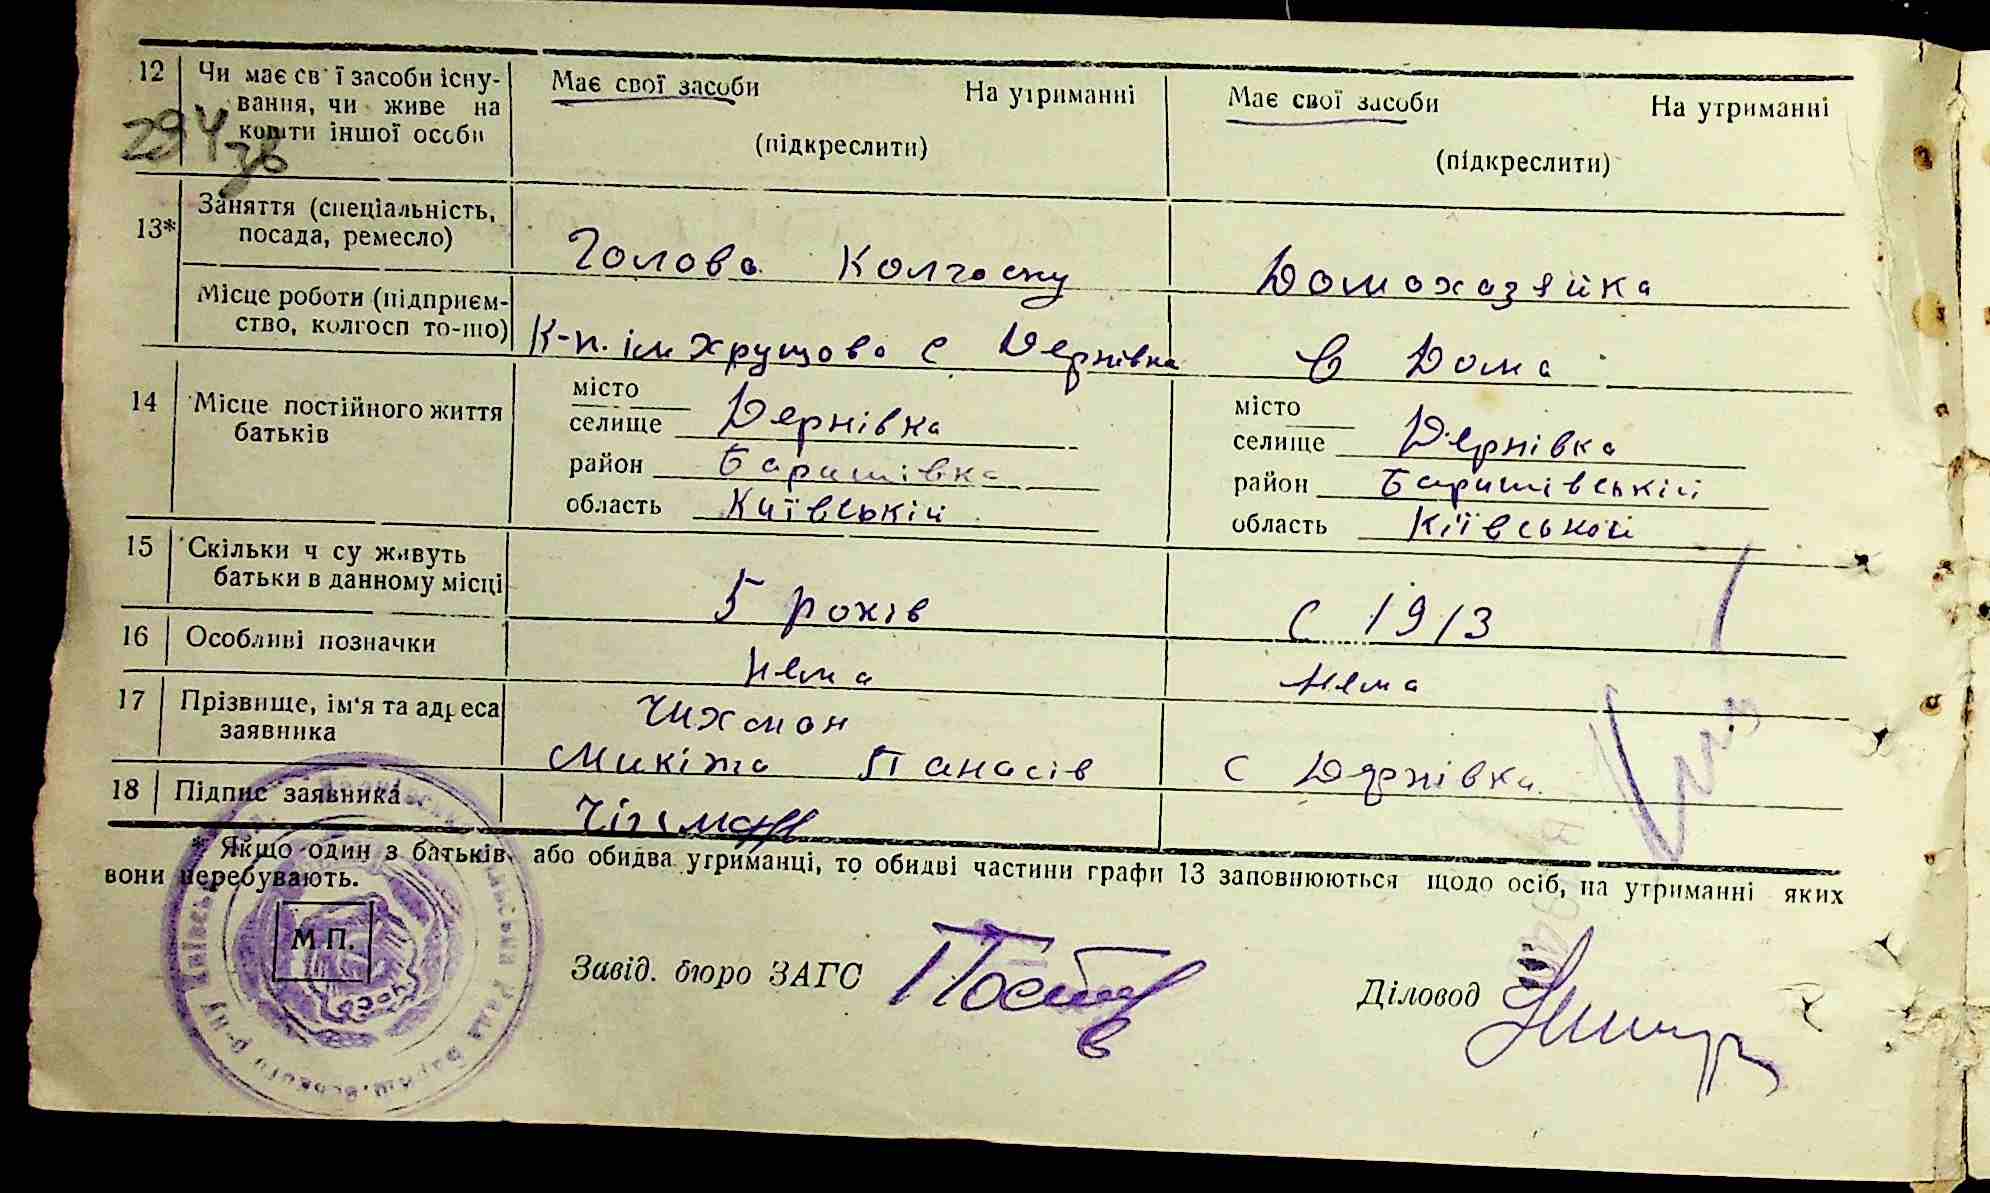 12 Чи має св ї засоби існу-
вання, чи живе на
кошти іншої особи
Має свої засоби На утриманні
(підкреслити)
Має свої засоби На утриманні
(підкреслити)
294
13* Заняття (спеціальність,
посада, ремесло)
Голова Колгоспу
Домохазяйка
Місце роботи (підприєм-
ство, колгосп то-що)
К-п. ім Хрущова с Дернівка
в Дома
14 Місце постійного життя
батьків
місто
селище Дернівка
район Баришівка
область Київській
місто
селище Дернівка
район Баришівській
область Кіївській
15 Скільки ч су живуть
батьки в данному місці
5 років
с 1913
16 Особливі позначки
Нема
Нема
17 Прізвище, ім'я та адреса
заявника
Чихман
Микіта Панасів
с Дярнівка
18 Підпис заявника
Чіхман
* Якщо один з батьків, або обидва утриманці, то обидві частини графи 13 заповнюються щодо осіб, на утриманні яких
вони перебувають.
М П.
Завід. бюро ЗАГС
Діловод